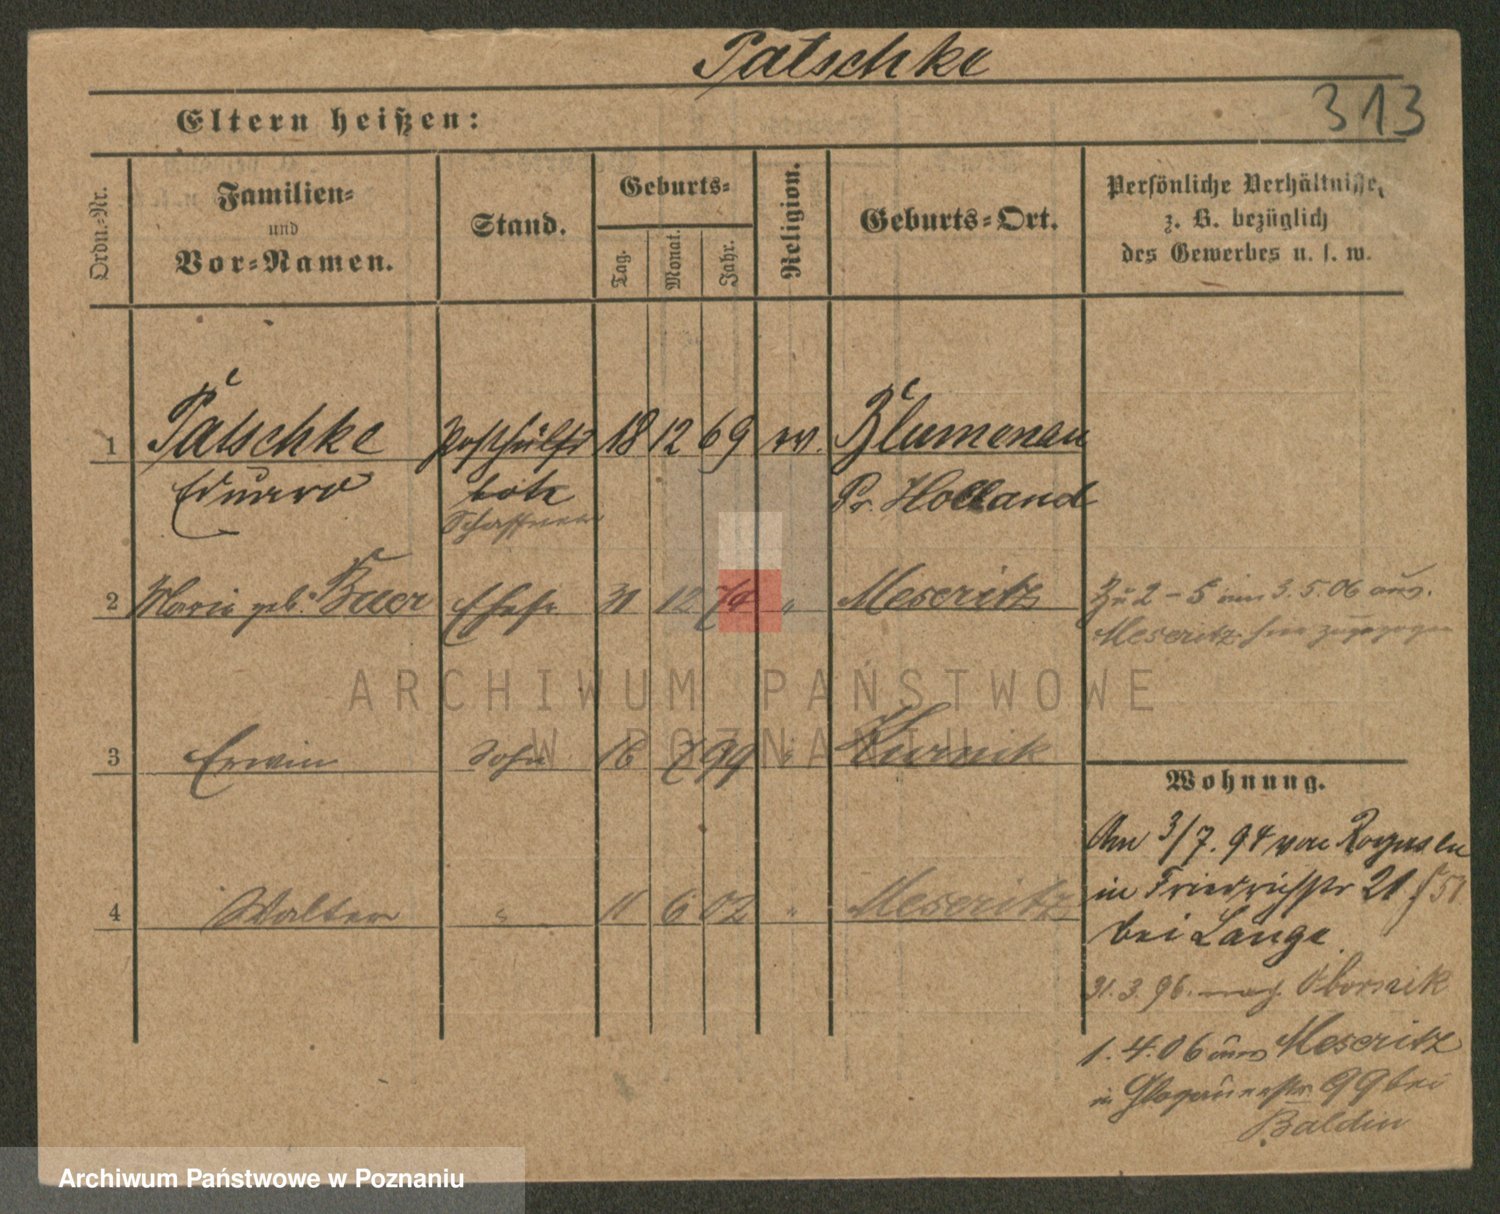 Patschke
313
Eltern heißen:
Ordn.-Nr.
Familien-
und
Vor-Namen.
Stand.
Geburts-
Tag.
Monat.
Jahr.
Religion.
Geburts-Ort.
Persönliche Verhältnisse,
z. B. bezüglich
des Gewerbes u. s. w.
1 Patschke Posthülfs 18 12 69 ev. Blumenau
Eduard bote Pr. Holland
Schaffner
2 Marie geb. Baer Ehefr 31 12 74 " Meseritz
Zu 2-5 am 3.5.06 aus
Meseritz hier zugezogen
3 Erwin Sohn 16 7 99 " Kurnik
4 Walter " 11 6 02 " Meseritz
Wohnung.
Am 3/7. 94 von
in Friedrichstr 21
bei Lange
31.3.96. nach Obornik
1.4.06 aus Meseritz
in Glogauerstr. 99 bei
Baldin
ARCHIWUM PAŃSTWOWE
W POZNANIU
Archiwum Państwowe w Poznaniu